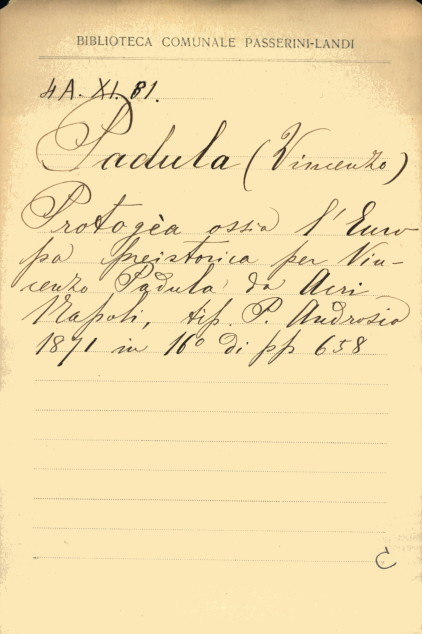 BIBLIOTECA COMUNALE PASSERINI-LANDI
4A. XI. 81.
Padula (Vincenzo)
Protogèa ossia l'Euro
pa preistorica per Vin-
cenzo Padula da Acri
Napoli, tip. P. Androsio
1871 in 16° di pp 658
C